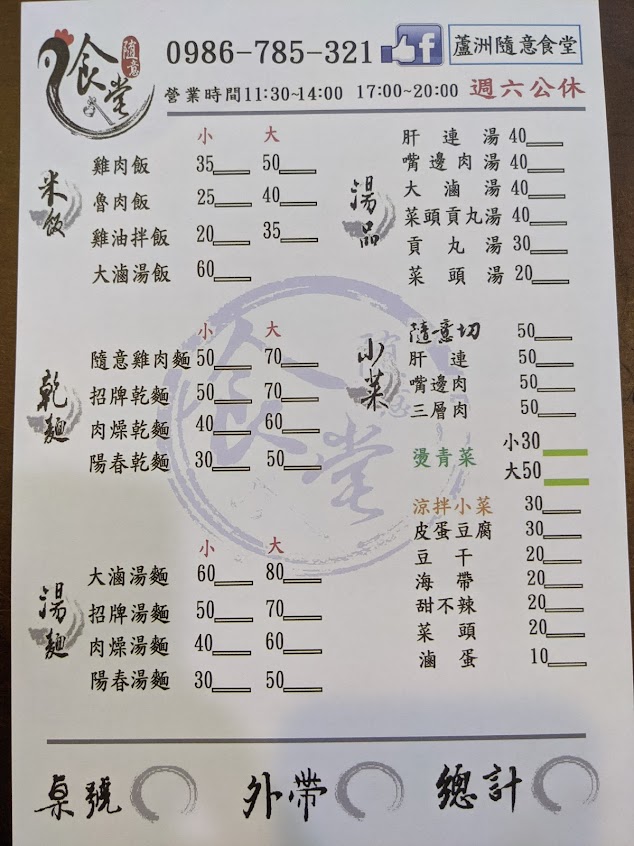 隨意
食堂
0986-785-321
f
蘆洲隨意食堂
營業時間11:30~14:00 17:00~20:00 週六公休
米飯
小 大
雞肉飯 35 50
魯肉飯 25 40
雞油拌飯 20 35
大滷湯飯 60
乾麵
小 大
隨意雞肉麵 50 70
招牌乾麵 50 70
肉燥乾麵 40 60
陽春乾麵 30 50
湯麵
小 大
大滷湯麵 60 80
招牌湯麵 50 70
肉燥湯麵 40 60
陽春湯麵 30 50
湯品
肝連湯 40
嘴邊肉湯 40
大滷湯 40
菜頭貢丸湯 40
貢丸湯 30
菜頭湯 20
小菜
隨意切 50
肝連 50
嘴邊肉 50
三層肉 50
燙青菜 小30
大50
涼拌小菜 30
皮蛋豆腐 30
豆干 20
海帶 20
甜不辣 20
菜頭 20
滷蛋 10
隨意
食堂
桌號 外帶 總計